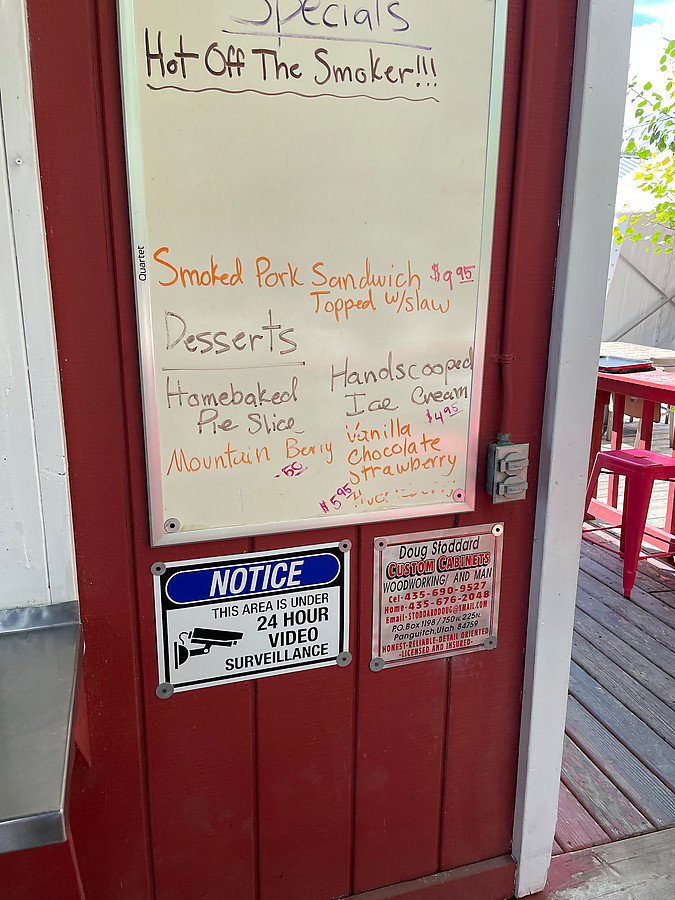 Specials
Hot Off The Smoker!!!
Quartet
Smoked Pork Sandwich $9.95
Topped w/slaw
Desserts
Homebaked
Pie Slice
Mountain Berry
.50
Handscooped
Ice Cream
$4.95
Vanilla
Chocolate
Strawberry
$5.95
NOTICE
THIS AREA IS UNDER
24 HOUR
VIDEO
SURVEILLANCE
Doug Stoddard
CUSTOM CABINETS
WOODWORKING/ AND MAN
Cel-435-690-9527
Home-435-676-2048
Email-STODDARDDOUG@YMAIL.COM
P.O. Box 1198 / 750 N. 225 N.
Panguitch, Utah 84759
HONEST-RELIABLE-DETAIL ORIENTED
-LICENSED AND INSURED-